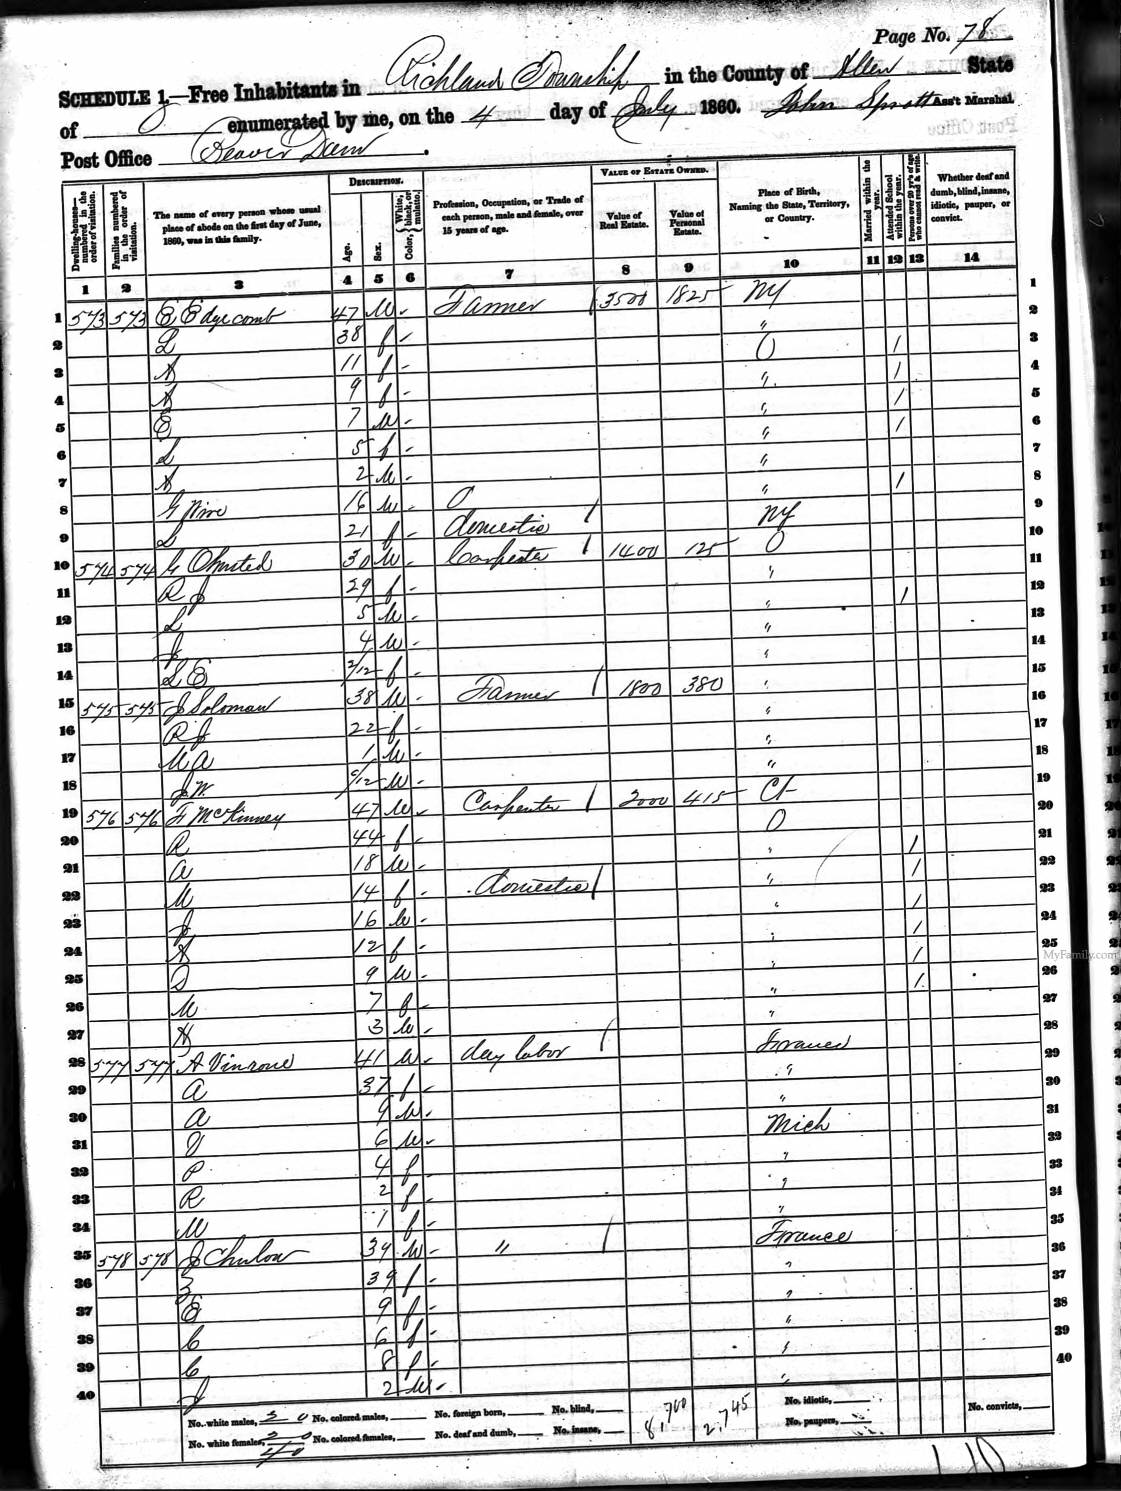 Page No. 78
SCHEDULE 1.—Free Inhabitants in Richland Township in the County of Allen State
of O enumerated by me, on the 4 day of July 1860. John Sprott Ass't Marshal
Post Office Beaver Dam.
Dwelling-houses—numbered in the order of visitation.
Families numbered in the order of visitation.
The name of every person whose usual place of abode on the first day of June, 1860, was in this family.
DESCRIPTION.
Age.
Sex.
Color, { White, black, or mulatto.
Profession, Occupation, or Trade of each person, male and female, over 15 years of age.
VALUE OF ESTATE OWNED.
Value of Real Estate.
Value of Personal Estate.
Place of Birth, Naming the State, Territory, or Country.
Married within the year.
Attended School within the year.
Persons over 20 y'rs of age who cannot read & write.
Whether deaf and dumb, blind, insane, idiotic, pauper, or convict.
1 2 3 4 5 6 7 8 9 10 11 12 13 14
1 573 573 E Edgecomb 47 M - Farmer 3500 1825 NY 1
2 L 38 f - " 2
3 A 11 f - O 1 3
4 A 9 f - " 1 4
5 E 7 M - " 1 5
6 L 5 f - " 1 6
7 A 2 M - " 7
8 G 16 M - O " 1 8
9 L 21 f - domestic / NY 9
10 574 574 G Olmsted 30 M - Carpenter / 1400 125 O 10
11 R J 29 f - " 11
12 L 5 M - " 1 12
13 J 4 M - " 13
14 L E 2/12 f - " 14
15 575 575 J Soloman 38 M - Farmer / 1800 380 " 15
16 R J 22 f - " 16
17 M A 1 M - " 17
18 J W /12 M - " 18
19 576 576 F McKinney 47 M - Carpenter / 2000 415 Ct 19
20 R 44 f - O 20
21 A 18 M - " 1 21
22 M 14 f - domestic / " 1 22
23 J 16 M - " 1 23
24 A 12 f - " 1 24
25 D 9 M - " 1 25
26 M 7 f - " 1 26
27 H 3 M - " 27
28 577 577 A Vinrone 41 M - day labor / France 28
29 A 37 f - " 29
30 A 9 M - " 30
31 V 6 M - Mich 31
32 P 4 f - " 32
33 R 2 f - " 33
34 M 1 f - " 34
35 578 578 J Chulow 39 M - " / France 35
36 Z 39 f - " 36
37 E 9 f - " 37
38 C 6 f - " 38
39 C 8 f - " 39
40 J 2 M - " 40
No. white males, 20 No. colored males, No. foreign born, No. blind, 8,700 2,745 No. idiotic, No. convicts,
No. white females, 20 No. colored females, No. deaf and dumb, No. insane, No. paupers,
40
MyFamily.com